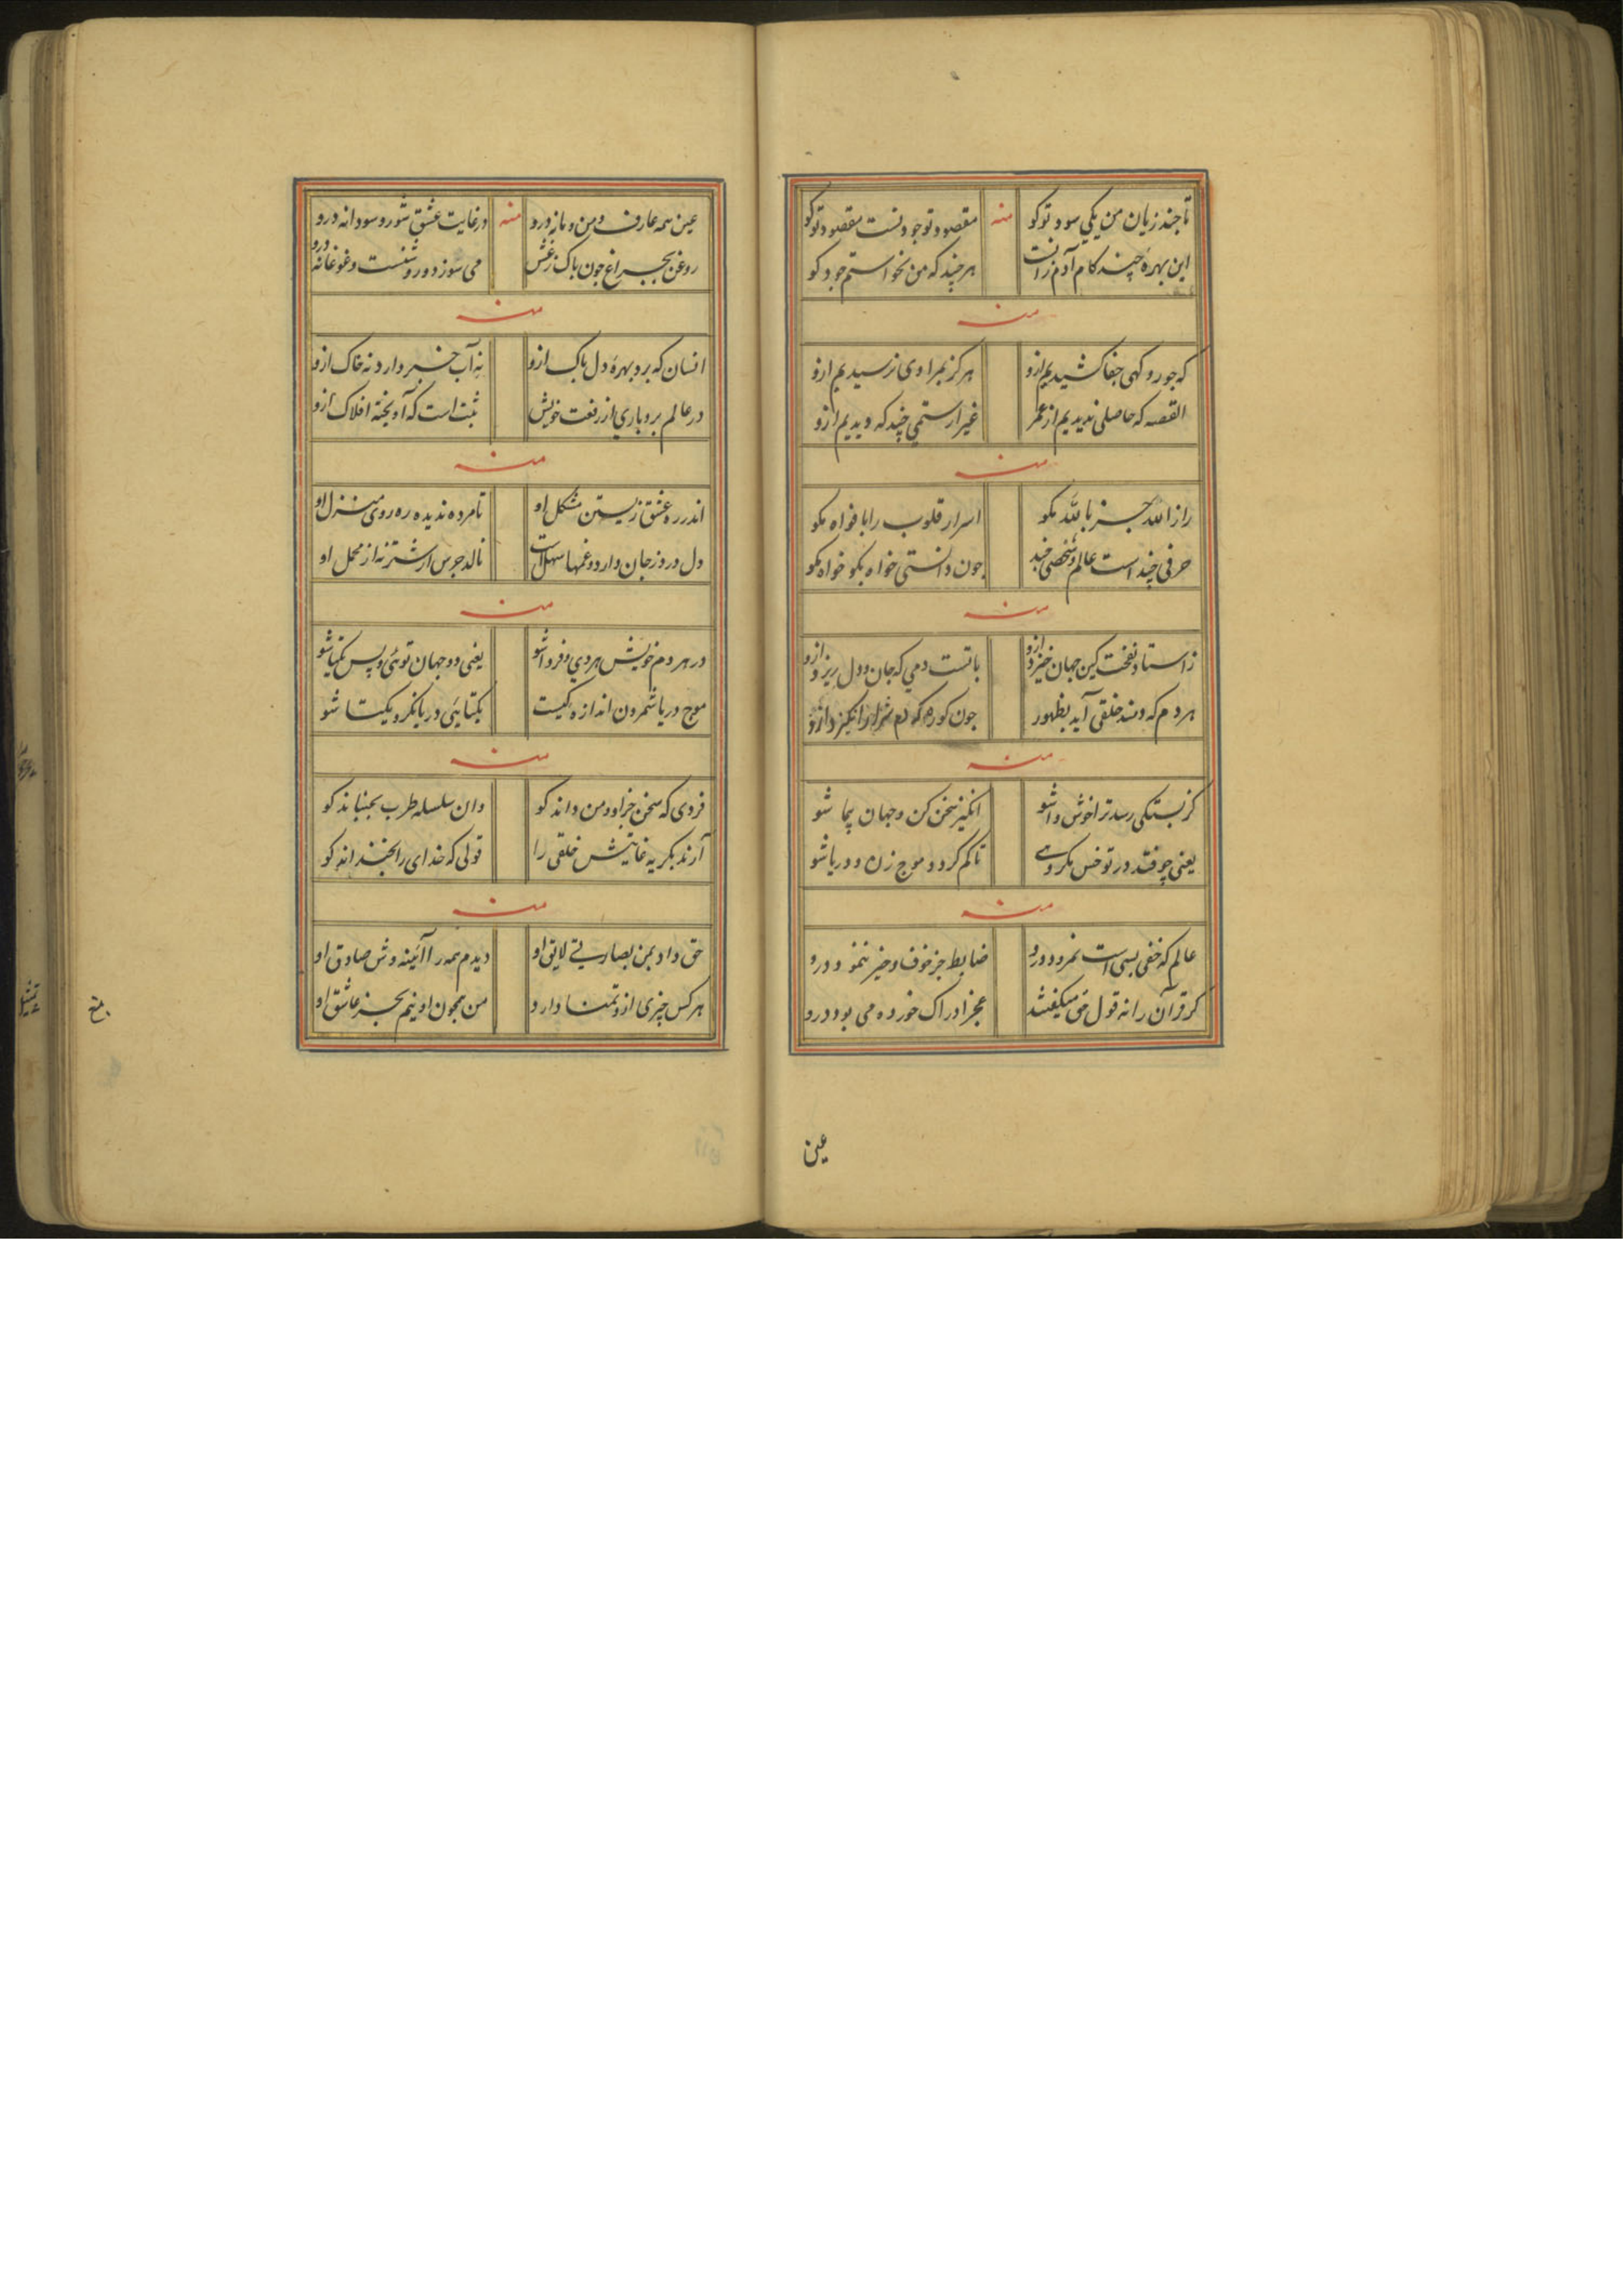 تا چند زیان من یکی سود تو کو منه مقصود تو جود نست مقصود تو کو
این بهرهٔ چند کام آدم زانست هر چند که من نخواستم جود کو
منه
که جور و کهی جفا کشیدیم ازو هرگز بمرادی نرسیدیم ازو
القصه که حاصلی ندیدیم از عمر غیر از ستمی چند که دیدیم ازو
منه
راز الله جز بالله مکو اسرار قلوب را بافواه مکو
حرفی چند است عالم و شخصی چند چون دانستی خواه بکو خواه مکو
منه
ز استاد نفخت کین جهان خیزد ازو باتست دمی که جان و دل ریزد ازو
هر دم که دمند خلقی آید بظهور چون کوره که دم شرار انگیزد ازو
منه
کز بستگی رسد ترا خوش واشو انگیز سخن کن و جهان پیما شو
یعنی چو فتد در تو خس مکروهی تا کم گردد موج زن و دریا شو
منه
عالم که خفی بسی است نمرود درو ضابط جز خوف و خیر ننمود درو
گر قرآن را نه قول حق میگفتند عجز ادراک خورده می بود درو
عین
عین همه عارف و من و مانه درو منه در غایت عشق شور و سودا نه درو
روغن بچراغ چون پاک زغش می سوزد و روشنست و غوغا نه درو
منه
انسان که برد بهرهٔ دل پاک ازو نه آب خبر دارد نه خاک ازو
در عالم بردباری از رفعت خویش ثبت است که آویخته افلاک ازو
منه
اندر ره عشق زیستن مشکل او تا مرده ندیده ره روی منزل او
دل درد ز جان دارد و غمها سهل است نالد جرس از شتر نه از محمل او
منه
در هر دم خویش هر دی و فردا شو یعنی دو جهان توئی و پس تنها شو
موج دریا شمردن اندازهٔ کیست یکتایئی دریا نگر و یکتا شو
منه
فردی که سخن جز او و من داند کو وان سلسله طرب بجنباند کو
آرند بگریه غایتش خلقی را قولی که خدای را بخنداند کو
منه
حق داد بمن بصارتی لایق او دیدم همه را آئینه وش صادق او
هر کس چیزی ازو تمنا دارد من مجنون او نیم بجز عاشق او